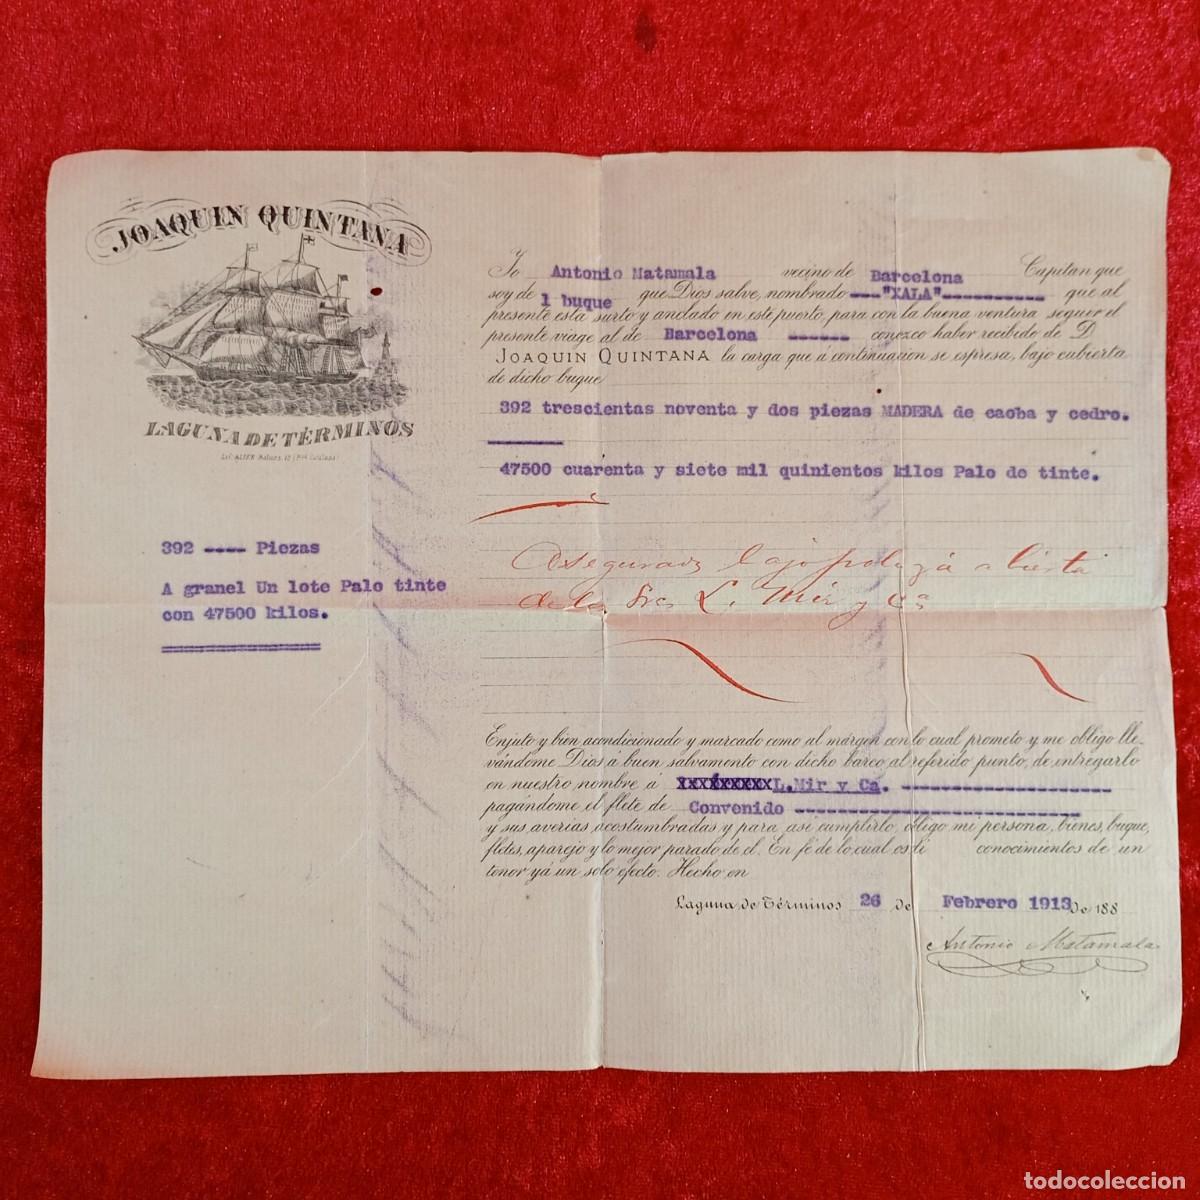 JOAQUIN QUINTANA
LAGUNA DE TÉRMINOS
392 ---- Piezas
A granel Un lote Palo tinte
con 47500 kilos.
Yo Antonio Matamala vecino de Barcelona Capitan que
soy de 1 buque que Dios salve, nombrado ---"XALA"----------- que al
presente está surto y anclado en este puerto, para con la buena ventura seguir el
presente viage al de Barcelona ------ conozco haber recibido de D.
JOAQUIN QUINTANA la carga que á continuacion se espresa, bajo cubierta
de dicho buque
392 trescientas noventa y dos piezas MADERA de caoba y cedro.
47500 cuarenta y siete mil quinientos kilos Palo de tinte.
Asegurada bajo poliza abierta
de los Sres L. Mir y Ca
Enjuto y bien acondicionado y marcado como al márgen con lo cual prometo y me obligo lle-
vándome Dios á buen salvamento con dicho barco al referido punto, de entregarlo
en nuestro nombre á XXXXXXXXX L. Mir y Ca. --------------------
pagándome el flete de Convenido ---------------------------
y sus averias acostumbradas y para asi cumplirlo, obligo mi persona, bienes, buque,
fletes, aparejo y lo mejor parado de el. En fé de lo cual os dí conocimientos de un
tenor y á un solo efecto. Hecho en
Laguna de Términos 26 de Febrero 1913 de 188
Antonio Matamala
todocoleccion